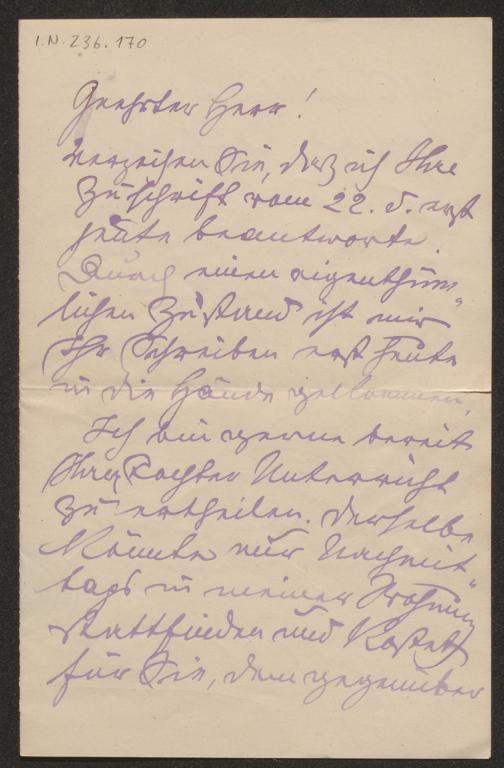 I.N. 236.170
Geehrter Herr!
Verzeihen Sie, daß ich Ihre
Zuschrift vom 22. d. erst
heute beantworte.
Durch einen eigenthüm-
lichen Zustand ist mir
Ihr Schreiben erst heute
in die Hände gekommen.
Ich bin gerne bereit
Ihrer Tochter Unterricht
zu ertheilen. Derselbe
könnte nur Nachmit-
tags in meiner Wohnung
stattfinden und kostet
für Sie, dem gegenüber